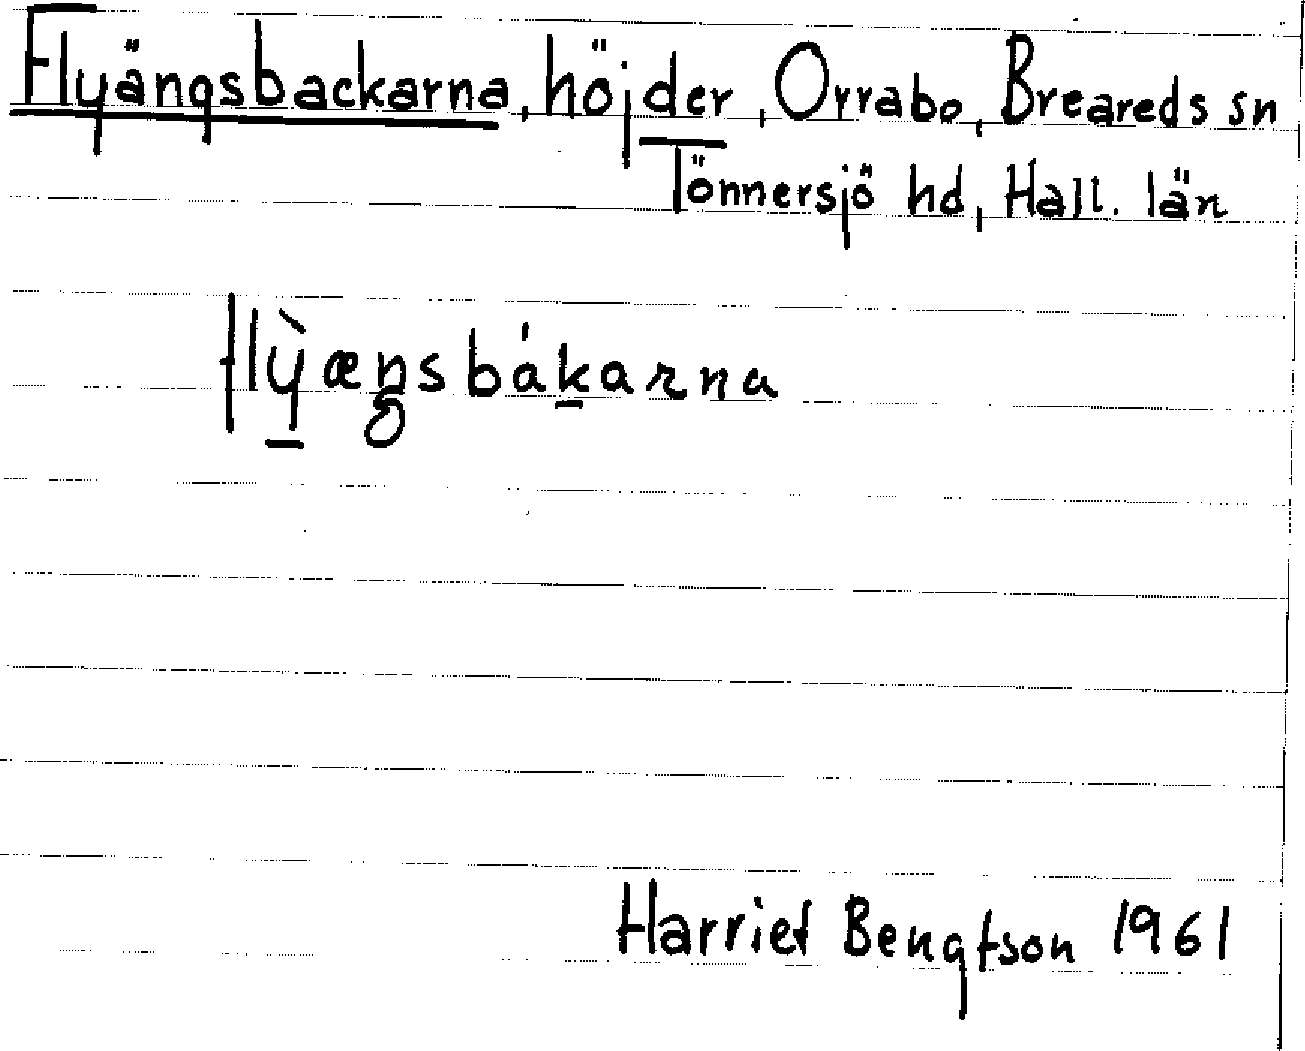 Flyängsbackarna, höjder, Orrabo, Breareds sn
Tönnersjö hd, Hall. län
flỳ̱æŋsbáḵarna
Harriet Bengtson 1961